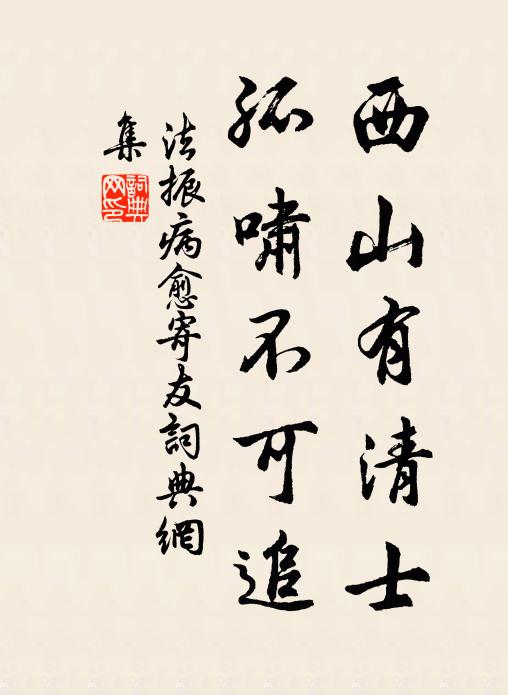 西山有清士
孤嘯不可追
法振病愈寄友詞典網
集
詞典網印